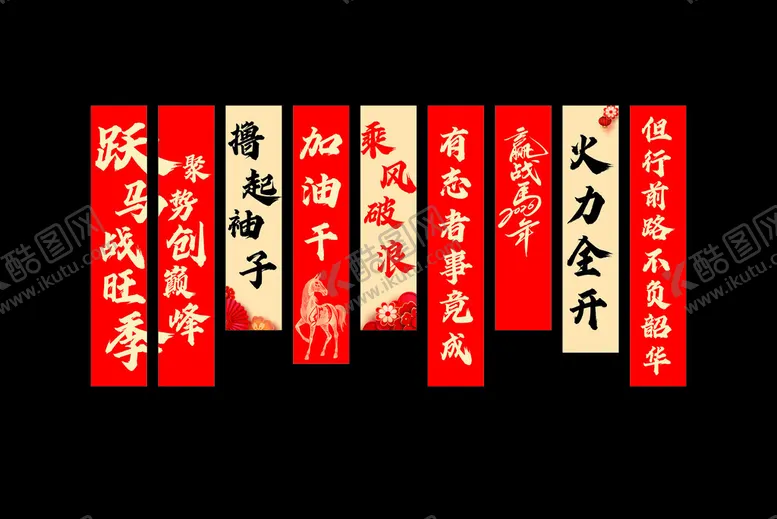 跃马战旺季
聚势创巅峰
撸起袖子
加油干
乘风破浪
有志者事竟成
赢战馬2026年
火力全开
但行前路不负韶华
酷图网
www.ikutu.com